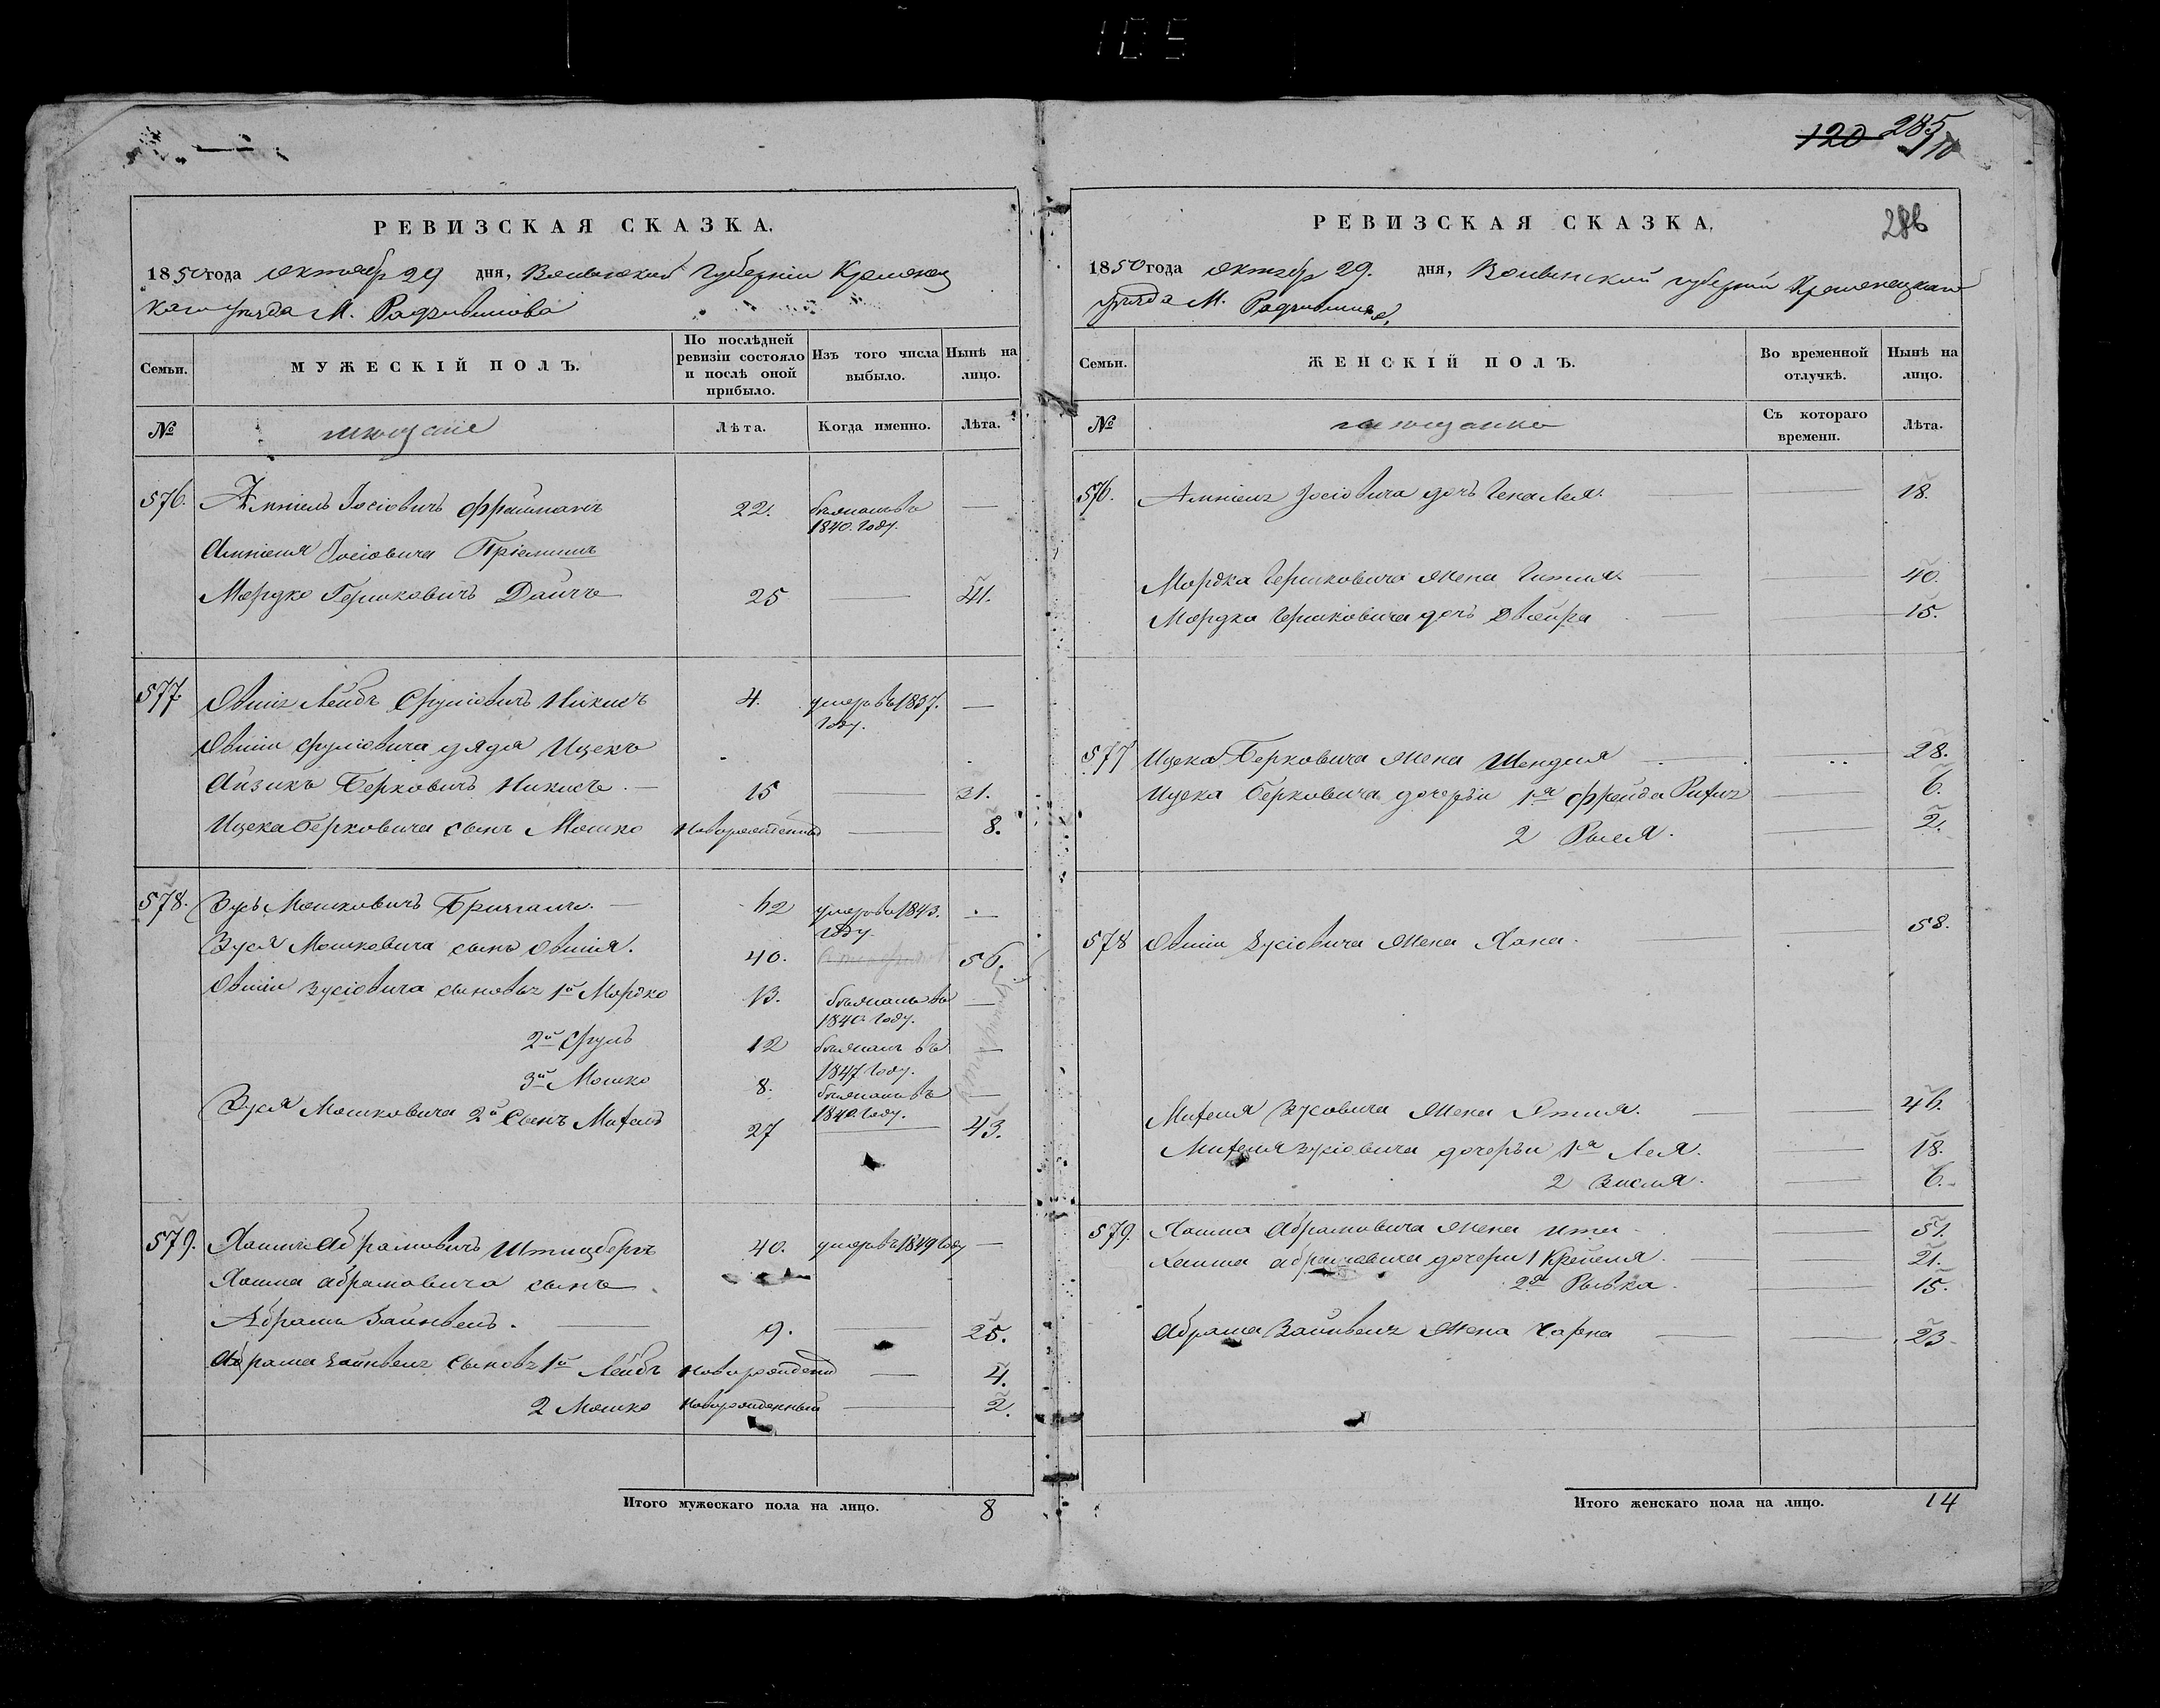 105
120 285
110
286
РЕВИЗСКАЯ СКАЗКА.
1850 года октябр 29 дня, Волынской Губерніи Кременец
каго уезда М. Радзивилова
Семьи. МУЖЕСКІЙ ПОЛЪ. По послѣдней ревизіи состояло и послѣ оной прибыло. Изъ того числа выбыло. Нынѣ на лицо.
№ мещане Лѣта. Когда именно. Лѣта.
576. Амшель Іосіовичъ Фрейманъ 22. —
1840. году.
Амшеля Іосіовича Пріемышъ
Мордко Гершковичъ 25 — 41.
577 Овшіа Лейбъ Сруліовичъ Никисъ 4. умеръ въ 1837. —
году.
Овшіи Сруліовича дядя Ицекъ
Айзикъ Берковичъ Никисъ — 15 — 31.
Ицека Берковича сынъ Мошко новорожденный — 8.
578. Зусь Мошковичъ — 62 умеръ въ 1843. —
году.
Зуся Мошковича сынъ Овшія. 40. 56.
Овшіи Зусіовича сыновья 1й Мордко 13. —
1840. году.
2й Сруль 12 —
1847 году.
3й Мошко 8. —
1840. году.
Зуся Мошковича 2й Сынъ 27 — 43.
579. Хаимъ Абрамовичъ 40. умеръ въ 1849 году —
Хаима Абрамовича сынъ
Абрамъ Зайнвель. — 9. 25.
Абрама Зайнвеля сыновья 1й Лейбъ новорожденный — 4.
2 Мошко новорожденный — 2.
Итого мужескаго пола на лицо. 8
РЕВИЗСКАЯ СКАЗКА.
1850 года октябр 29. дня, Волынской губерніи Кременецкаго
уезда М. Радзивилова.
Семьи. ЖЕНСКІЙ ПОЛЪ. Во временной отлучкѣ. Нынѣ на лицо.
№ мещанки Съ котораго времени. Лѣта.
576. Амшеля Іосіовича дочь — — 18.
Мордка Гершковича жена Гитля. — — 40.
Мордка Гершковича дочь Двойра — — 15.
577 Ицека Берковича жена Шендля — 28.
Ицека Берковича дочери 1я Фрейда — 6.
2 Рыся. — 2.
578 Овшіи Зусіовича жена Хана. — 58.
Зусовича жена — — 46.
Зусіовича дочери 1я Лея. — 18.
2 — 6.
579. Хаима Абрамовича жена Ита — 51.
Хаима Абрамовича дочери 1 Крейсля. — — 21.
2я Рывка. — 15.
Абрама Зайнвеля жена Чарна — — 23
Итого женскаго пола на лицо. 14